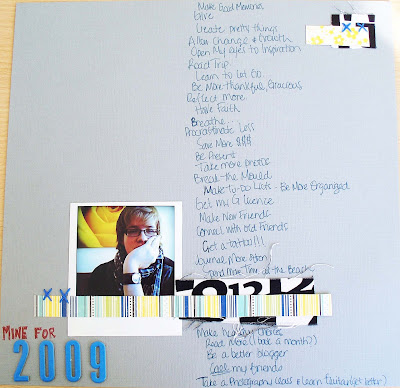 Make Good Memories
Give
Create pretty things
Allow Change & Growth
Open My eyes to Inspiration
Road Trip
Learn to Let Go
Be More Thankful, Gracious
Reflect More
Have Faith
Breathe...
Procrastinate Less
Save More $$$
Be Present
Take more photos
Break the Mould
Make To-Do Lists - Be More Organized
Get my G License
Make New Friends
Connect with old Friends
Get a tattoo!!!
Journal More Often
Spend More Time at the Beach
Make healthy choices
Read More (1 book a month)
Be a better blogger
Call my friends
Take a Photography Class & Learn
MINE FOR
2009